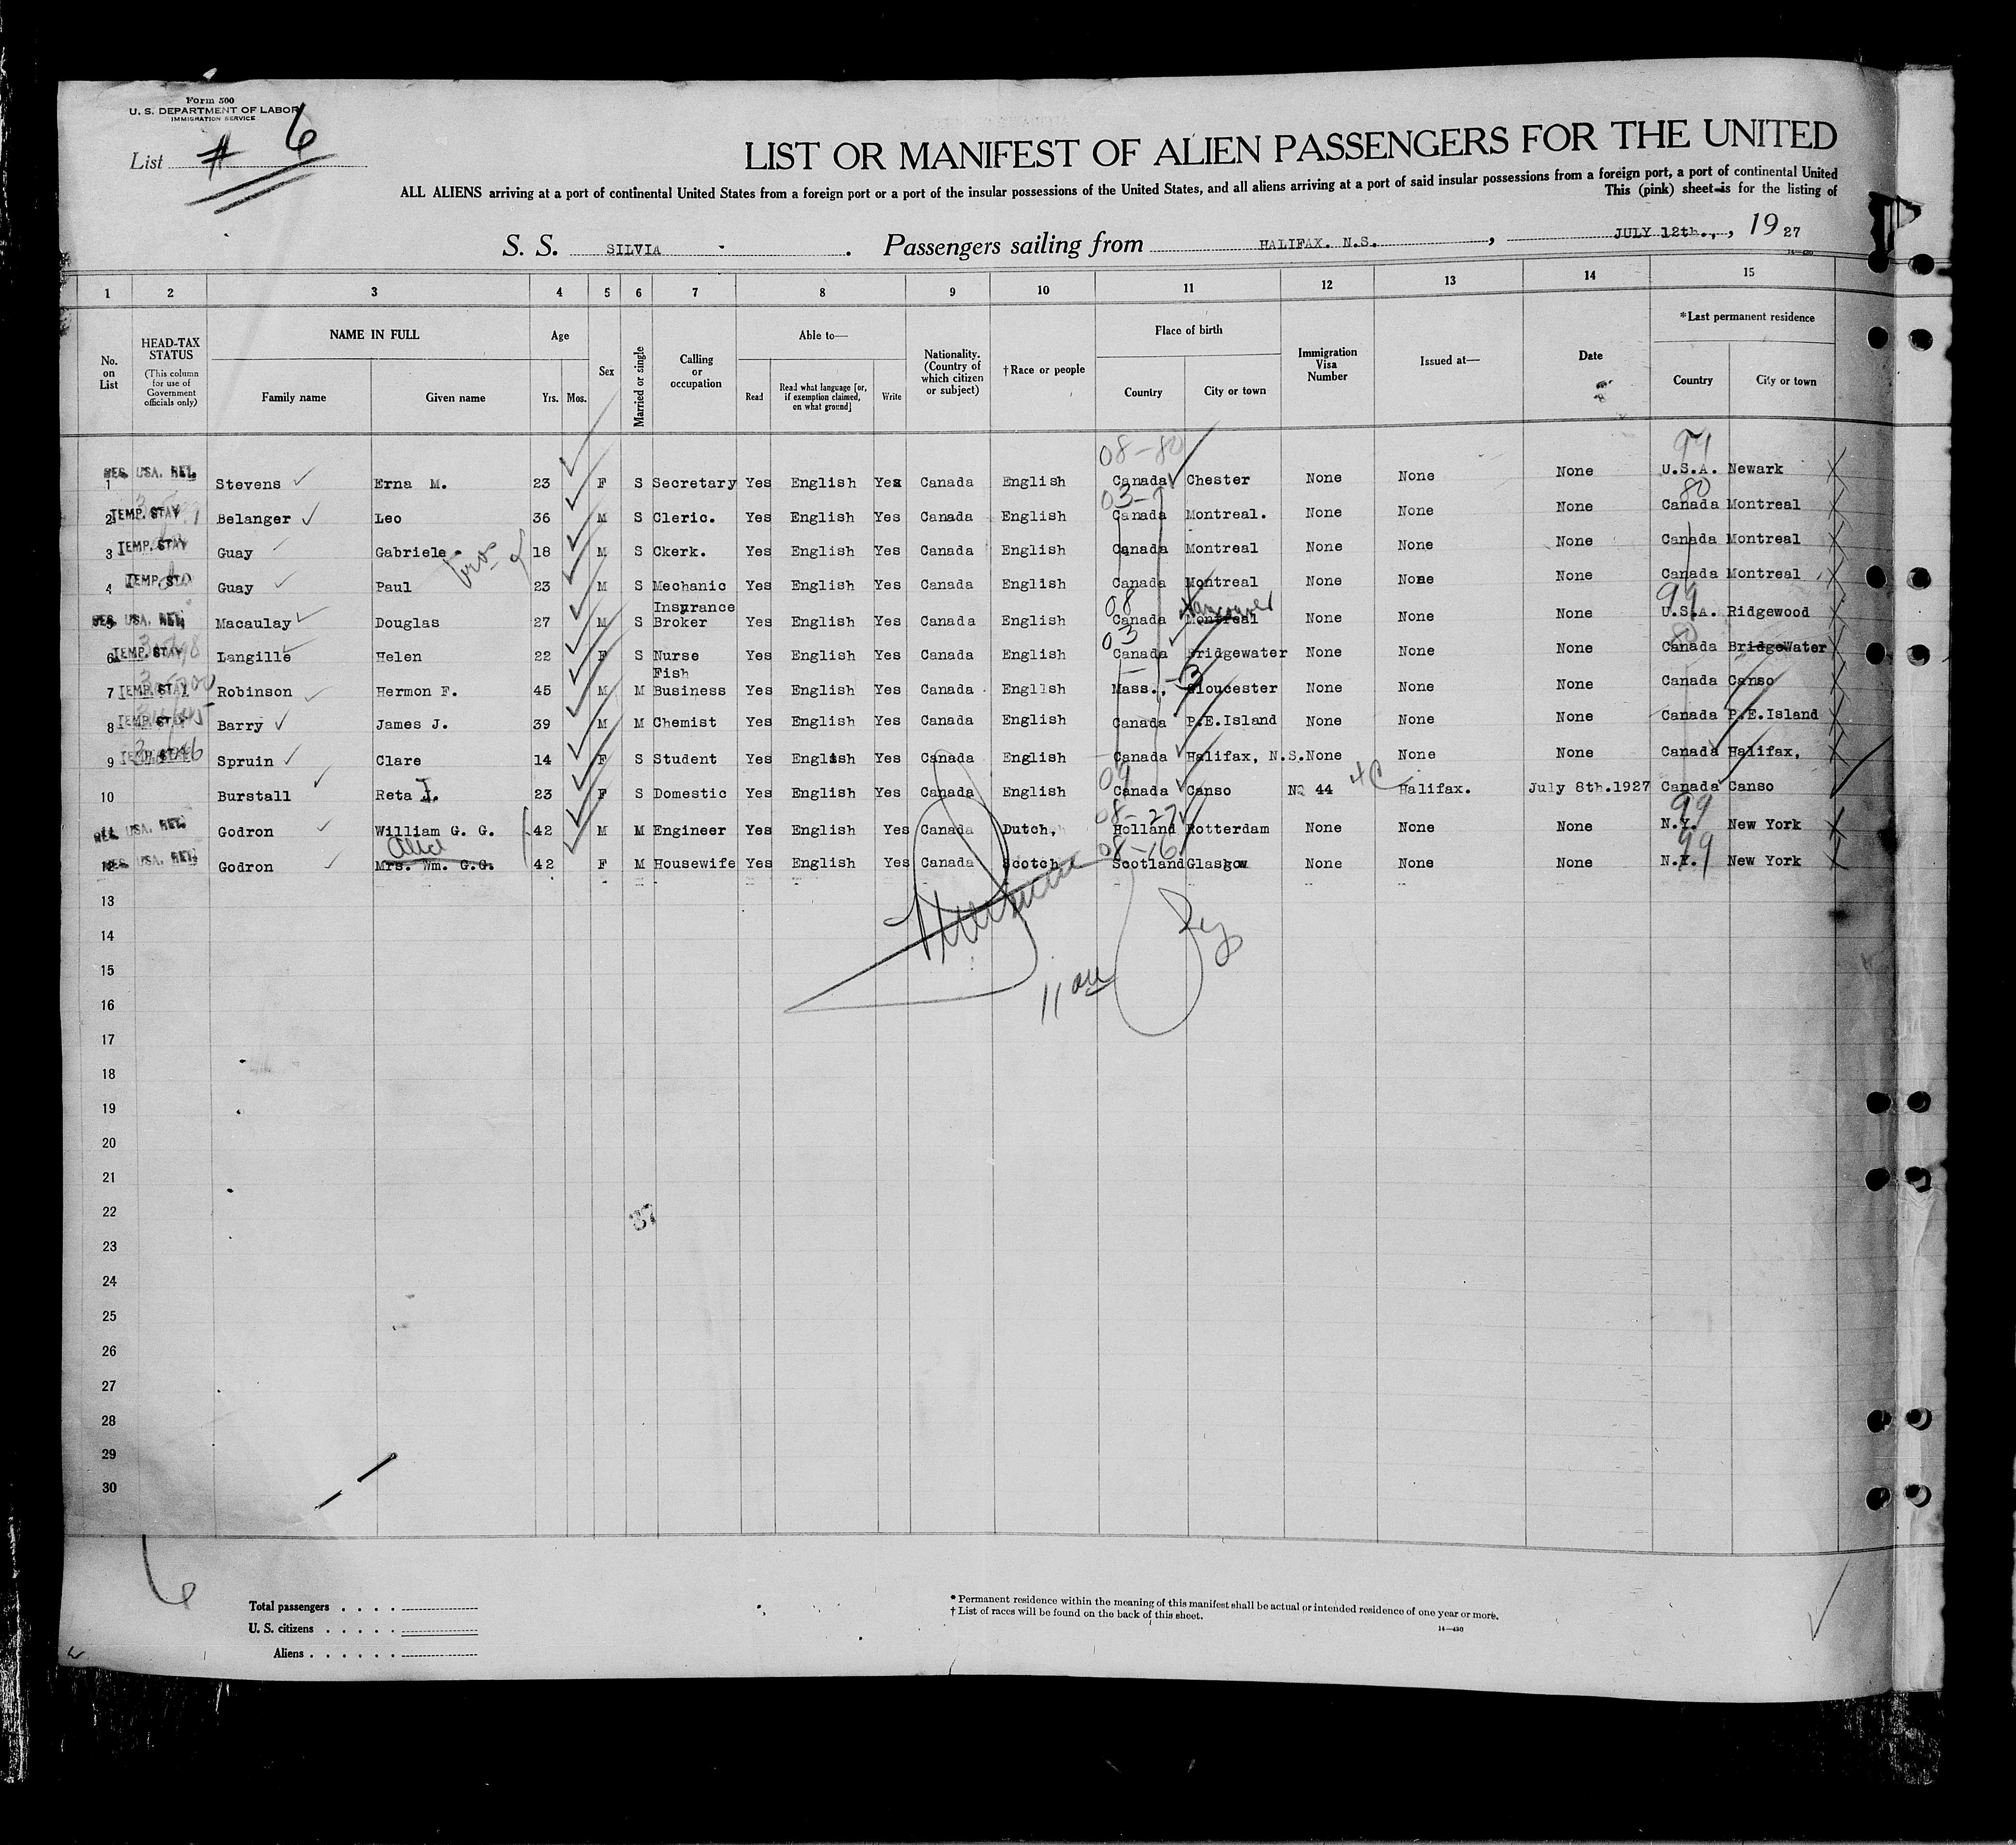 Form 500
U. S. DEPARTMENT OF LABOR
IMMIGRATION SERVICE
List # 6
LIST OR MANIFEST OF ALIEN PASSENGERS FOR THE UNITED
ALL ALIENS arriving at a port of continental United States from a foreign port or a port of the insular possessions of the United States, and all aliens arriving at a port of said insular possessions from a foreign port, a port of continental United
This (pink) sheet is for the listing of
S. S. SILVIA. Passengers sailing from HALIFAX. N.S., JULY 12th., 1927
14—430
1 2 3 4 5 6 7 8 9 10 11 12 13 14 15
No. on List
HEAD-TAX STATUS (This column for use of Government officials only)
NAME IN FULL Family name Given name
Age Yrs. Mos.
Sex
Married or single
Calling or occupation
Able to— Read Read what language [or, if exemption claimed, on what ground] Write
Nationality. (Country of which citizen or subject)
†Race or people
Place of birth Country City or town
Immigration Visa Number
Issued at—
Date
*Last permanent residence Country City or town
08-80 99
1 RES. USA. REL. Stevens Erna M. 23 F S Secretary Yes English Yes Canada English Canada Chester None None None U.S.A. Newark
03 80
2 TEMP. STAY Belanger Leo 36 M S Cleric. Yes English Yes Canada English Canada Montreal. None None None Canada Montreal
3 TEMP. STAY Guay Gabriele 18 M S Ckerk. Yes English Yes Canada English Canada Montreal None None None Canada Montreal
4 TEMP. STA Guay Paul 23 M S Mechanic Yes English Yes Canada English Canada Montreal None None None Canada Montreal
Insyrance 08 Vancouver 99
5 RES. USA. REL. Macaulay Douglas 27 M S Broker Yes English Yes Canada English Canada Montreal None None None U.S.A. Ridgewood
03 80
6 TEMP. STAY Langille Helen 22 F S Nurse Yes English Yes Canada English Canada Bridgewater None None None Canada BridgeWater
Fish
7 TEMP. STAY Robinson Hermon F. 45 M M Business Yes English Yes Canada English Mass., Gloucester None None None Canada Canso
8 TEMP. STAY Barry James J. 39 M M Chemist Yes English Yes Canada English Canada P.E.Island None None None Canada P.E.Island
9 TEMP. STAY Spruin Clare 14 F S Student Yes English Yes Canada English Canada Halifax, N.S. None None None Canada Halifax,
09 4C
10 Burstall Reta I. 23 F S Domestic Yes English Yes Canada English Canada Canso No 44 Halifax. July 8th.1927 Canada Canso
08-27 99
RES. USA. REL. Godron William G. G. 42 M M Engineer Yes English Yes Canada Dutch, Holland Rotterdam None None None N.Y. New York
Alice 08-16 99
12 RES. USA. REL. Godron Mrs. Wm. G.G. 42 F M Housewife Yes English Yes Canada Scotch Scotland Glasgow None None None N.Y. New York
13
14
15
16
17
18
19
20
21
22
37
23
24
25
26
27
28
29
30
6
Total passengers
U. S. citizens
Aliens
* Permanent residence within the meaning of this manifest shall be actual or intended residence of one year or more.
† List of races will be found on the back of this sheet.
14—430